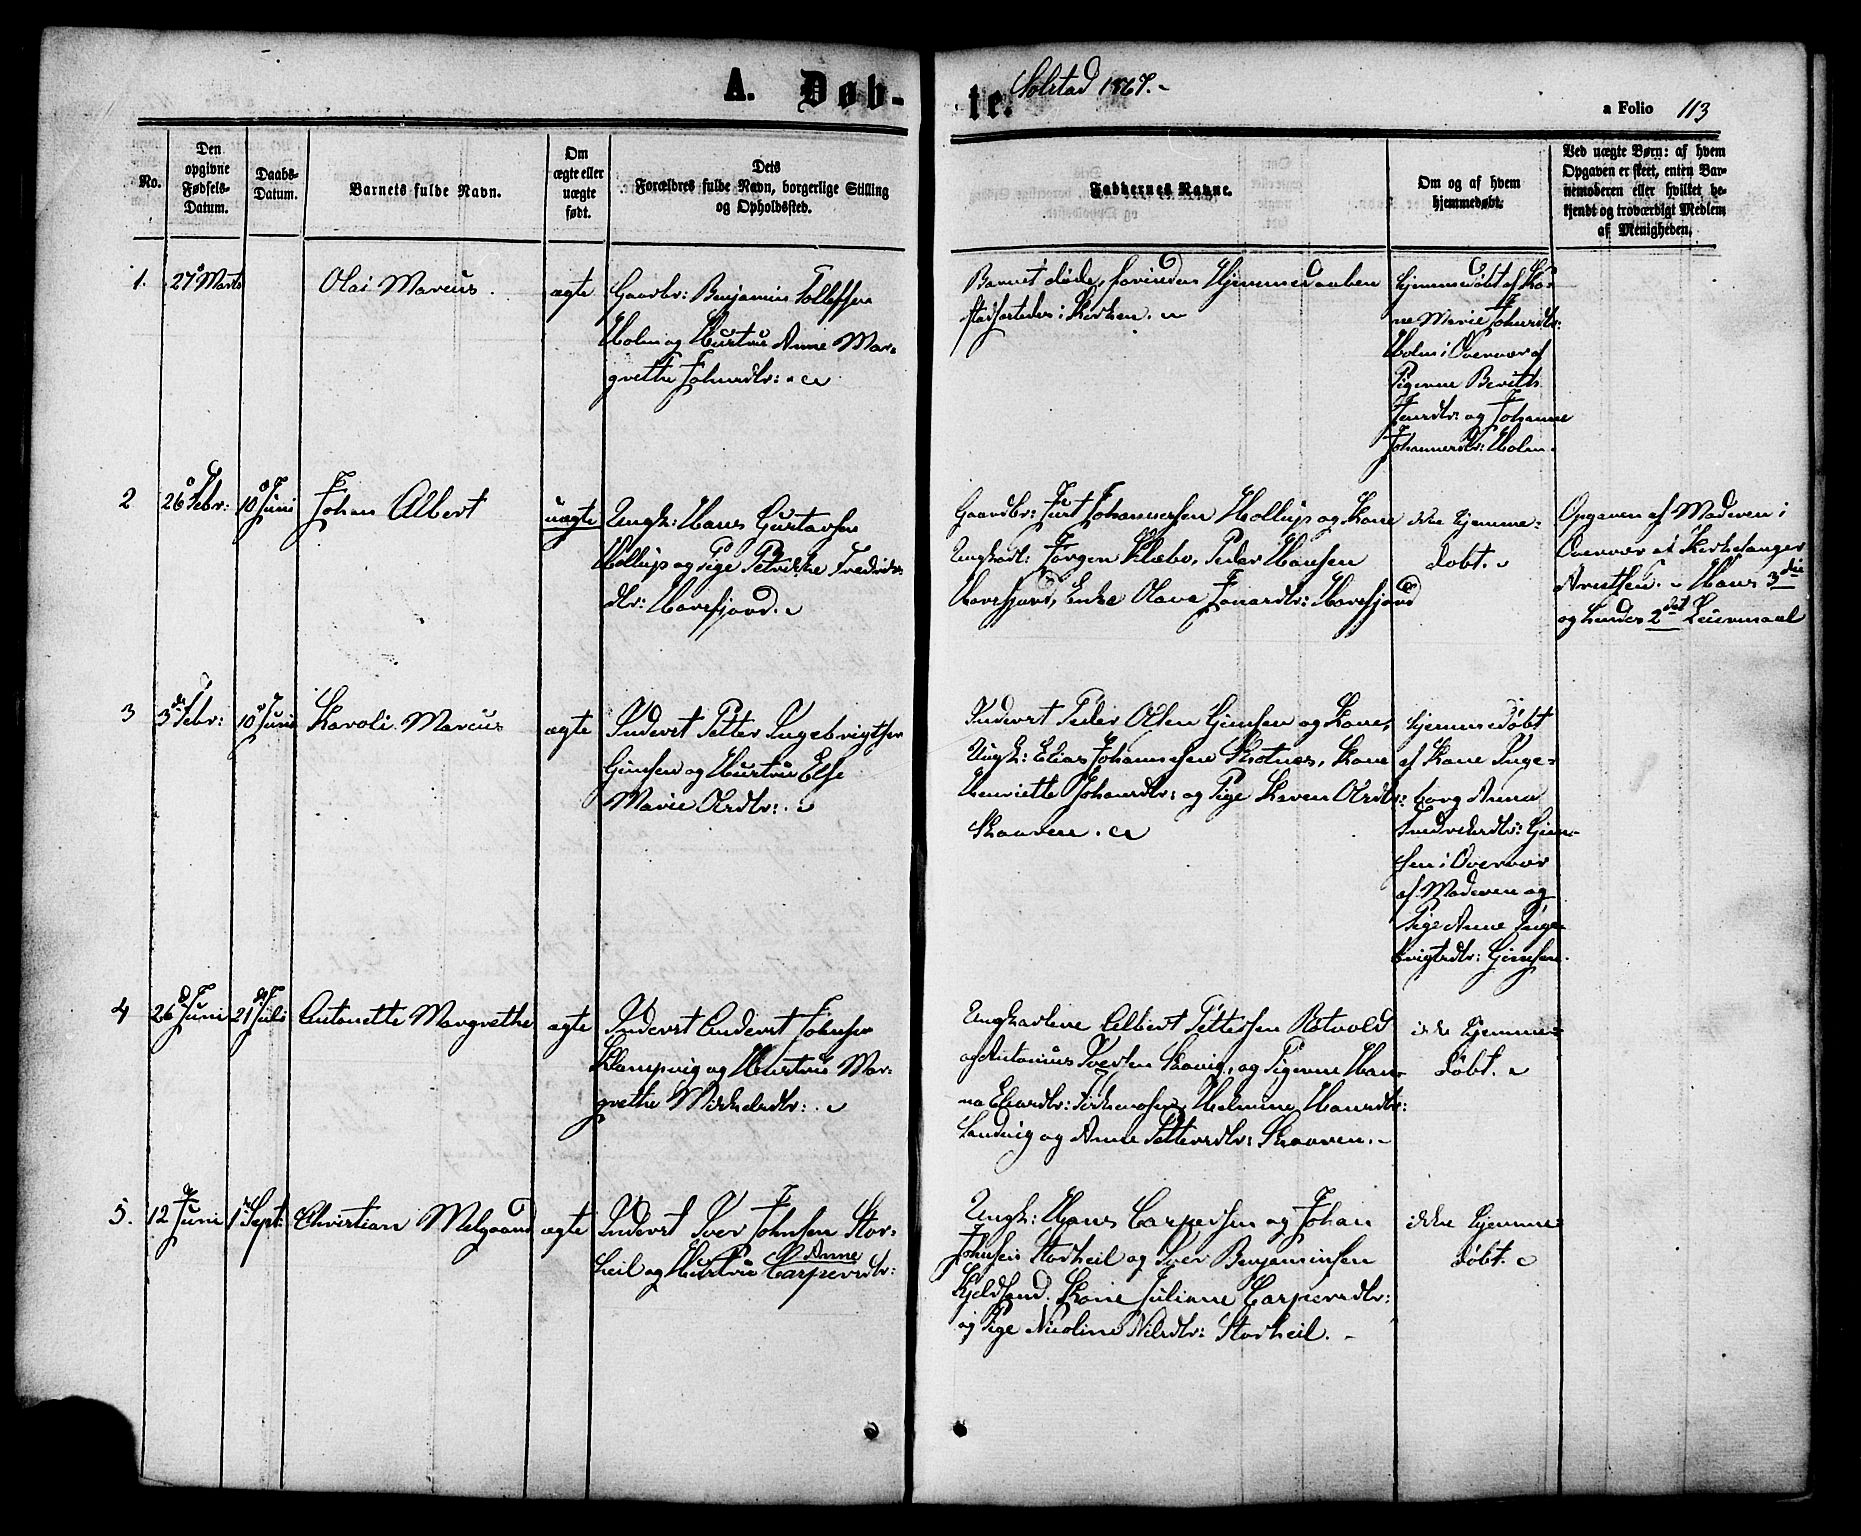 A. Døb-
te. Solstad 1867.-
a Folio 113
No.
Den
opgivne
Fødsels-
Datum.
Daabs-
Datum.
Barnets fulde Navn.
Om
ægte eller
uægte
født.
Dets
Forældres fulde Navn, borgerlige Stilling
og Opholdssted.
Faddernes Navne.
Om og af hvem
hjemmedøbt.
Ved uægte Børn: af hvem
Opgaven er skeet, enten Bar-
nemoderen eller hvilket be-
kjendt og troværdigt Medlem
af Menigheden.
1.
27 Marts
Olai Marcus
ægte
Gaardbr: Benjamin Tollefsen
Holm og Hustru Anne Mar-
grethe Johnsdtr:
Barnet døde, forinden Hjemmedaaben
stadfæstedes i Kirken.
hjemmedøbt af Ko-
ne Marie Johnsdtr:
Holm i Overvær af
Pigerne Berith
Jensdtr: og Johanne
Johannesdtr: Holm.
2
26 Febr:
10 Juni
Johan Albert
uægte
Ungk: Hans Gustavsen
Hollup og Pige Petrikke Fredriks-
dtr: Havefjord.
Gaardbr: Johannessen Hollup og Kone
Ungkarl: Jørgen Klæbo, Peder Hansen
Havefjord, Enke Olava Jonasdtr: Havefjord
ikke hjemme-
døbt.
Opgaven af Moderen i
Overvær af Kirkesanger
Arntsen. Hans 3die
og hendes 2det Leiermaal
3
3die Febr:
10 Juni
Karoli Marcus
ægte
Inderst Petter Ingebrigtsen
Gimsen og Hustru Else
Marie Olsdtr:
Inderst Peder Olsen Gimsen og Kone,
Ungk: Elias Johannesen Skotnes, Kone
Henriette Johansdtr: og Pige Karen Olsdtr:
Skaaren.
hjemmedøbt
af Kone Inge-
borg Anna
Fredriksdtr: Gim-
sen i Overvær
af Moderen og
Pige Anne Inge-
brigtsdtr: Gimsen.
4
26 Juni
21 Juli
Antonette Margrethe
ægte
Inderst Andert Johnsen
Klampvig og Hustru Mar-
grethe Mikkelsdtr:
Ungkarlene Albert Pettersen Røtvold
og Antonius Iversen Skavig, og Pigerne Han-
na Eliasdtr: Helmine Hansdtr:
Sandvig og Anne Pettersdtr: Skaaren.
ikke hjemme-
døbt.
5.
12 Juni
1 Sept:
Christian Melgaard
ægte
Inderst Iver Johnsen Stor-
heil og Hustru Anne Caspersdtr:
Ungk: Hans Caspersen og Johan
Johnsen Storheil og Iver Benjaminsen
Kjeldsand. Kone Juliane Caspersdtr:
og Pige Nicoline Nilsdtr: Storheil.
ikke hjemme-
døbt.